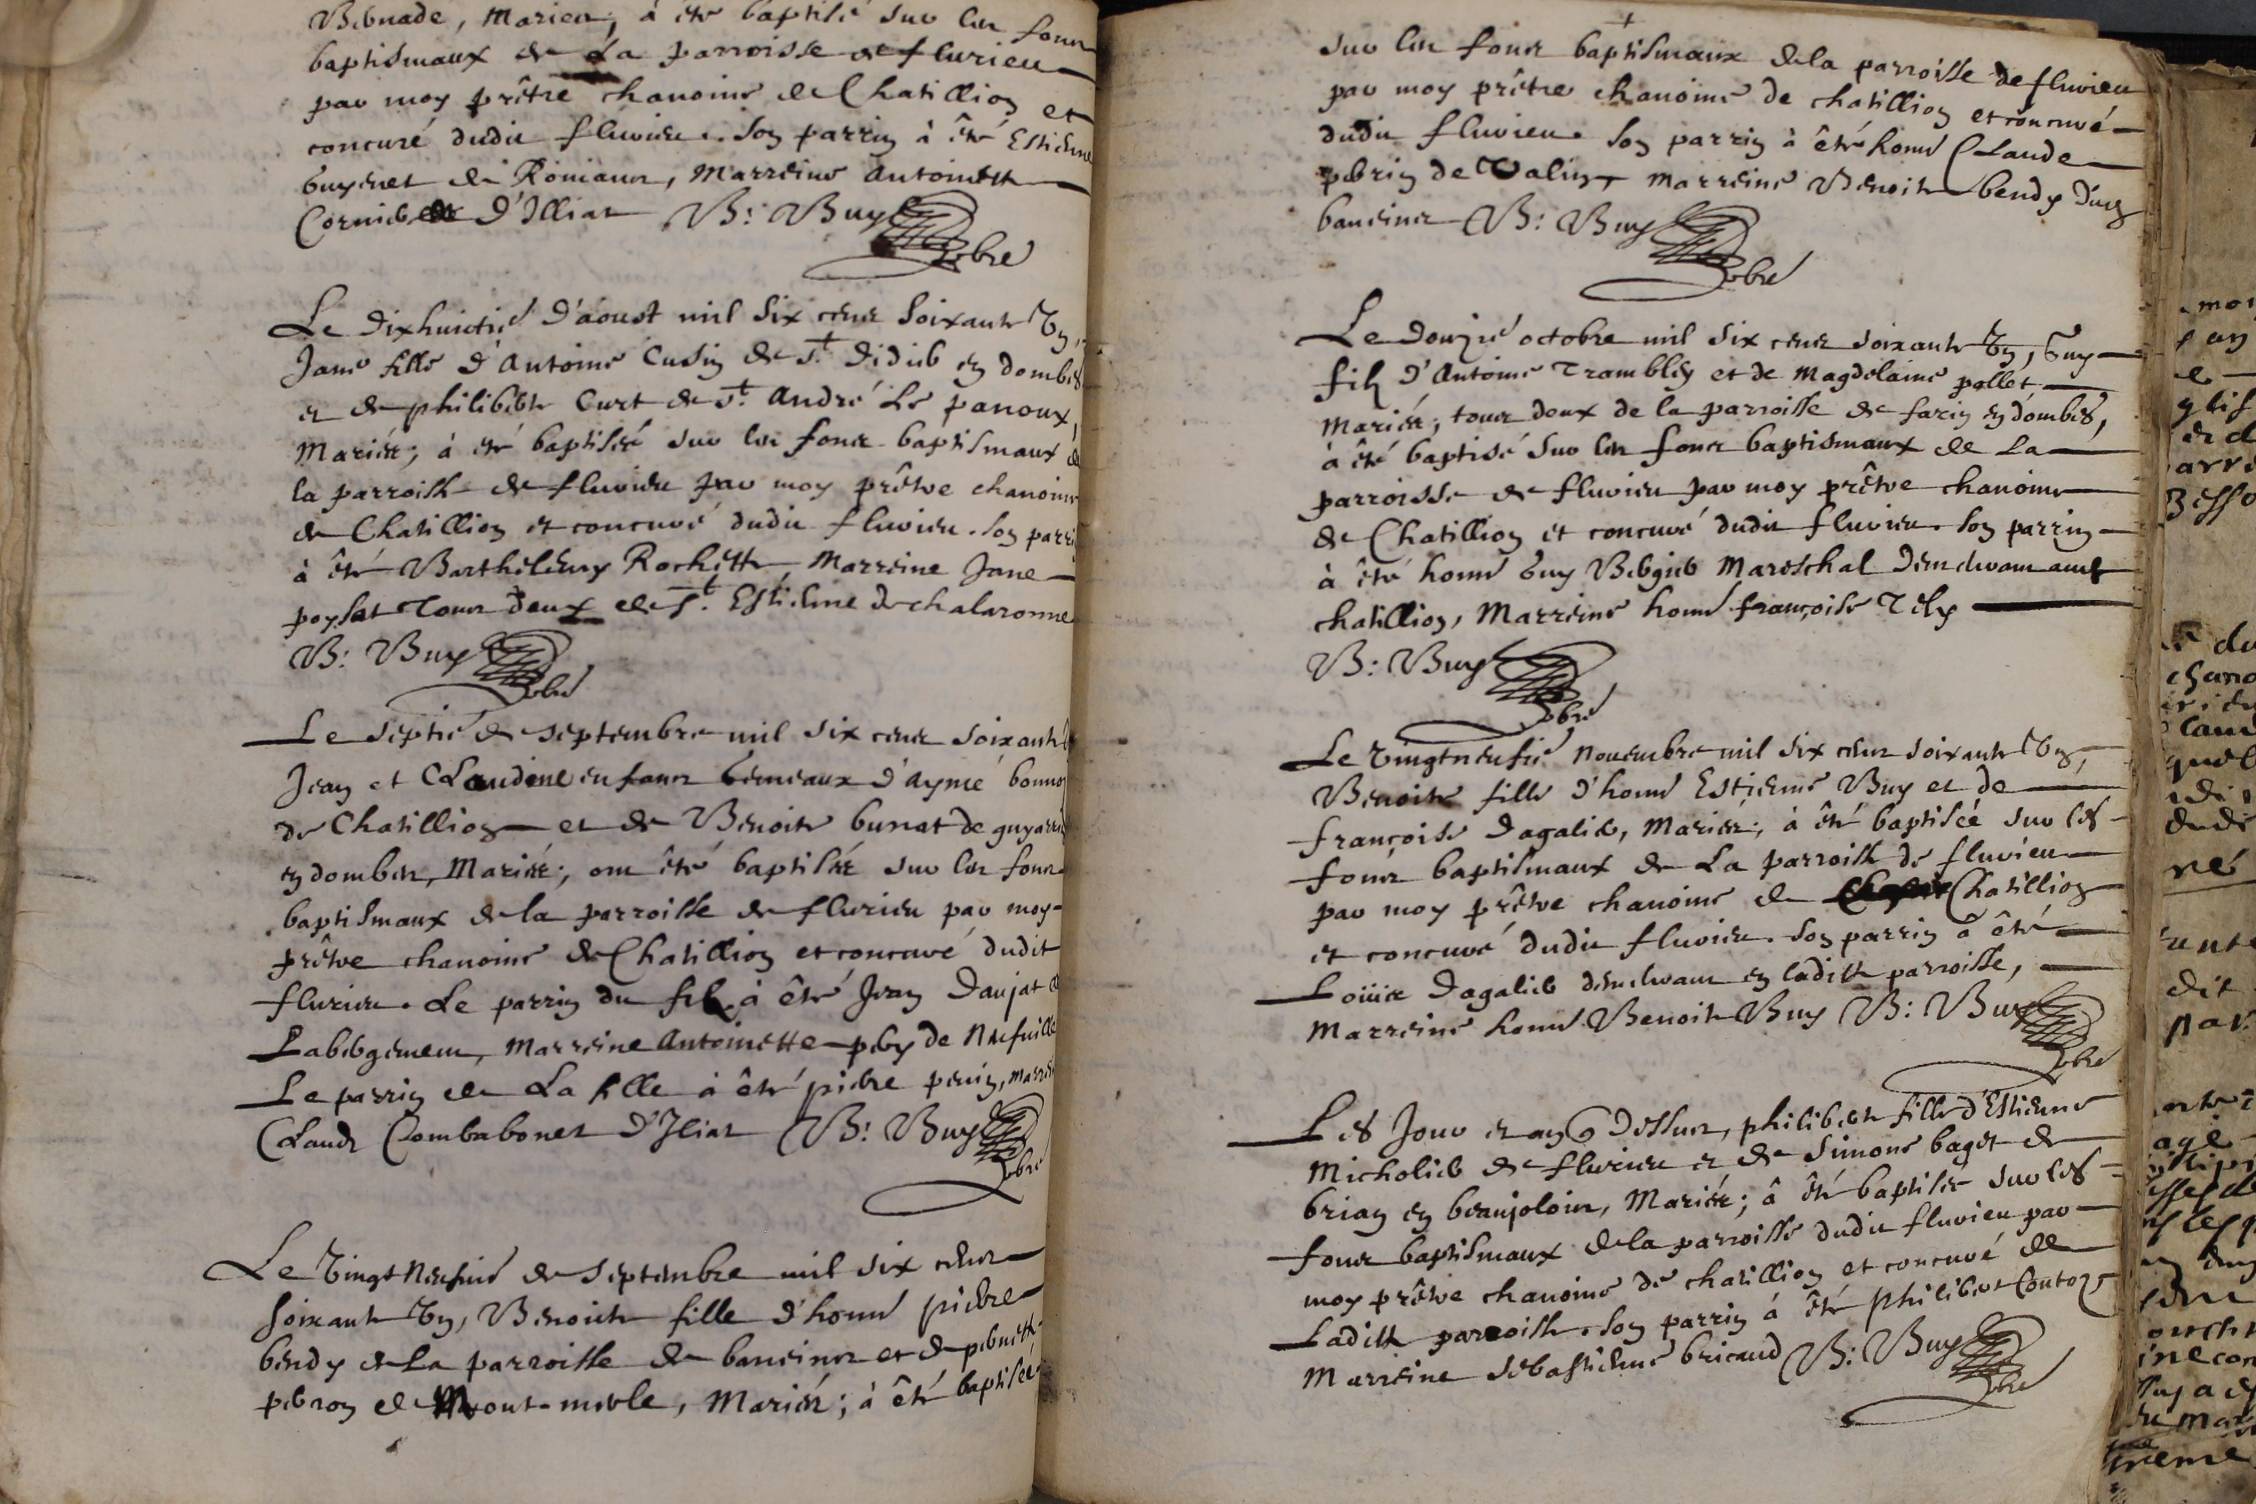 Bernade, Mariez, à été baptisé sur les fons
baptismaux de La parroisse de fluvieu
par moy prêtre chanoine de Chatillion et
concuré dudit fluvieu. Son parrin à êté Estienne
Guyenet de Romans, Marreine Antoinette
Cornier d'Illiat B: Buy
pbre
Le dixhuictie d'aoust mil six cens soixante Un,
Jane fille d'Antoine Cusin de St. Didier en dombes
et de philiberte Curt de St. André Le panoux,
Mariéz; à eté baptiséé sur les fons baptismaux de
la parroisse de fluvieu par moy prêtre chanoine
de Chatillion et concuré dudit fluvieu. Son parrin
à êté Barthelemy Rochette Marreine Jane
poysat Tous deux de St. Estienne de chalaronne
B: Buy
pbre
Le septie de septembre mil six cens soixante
Jean et Claudine enfans Gemeaux d'Aymé bonno
de Chatillion et de Benoite bunat de guyarrin
en dombes, Mariéz; ont êté baptiséz sur les fons
baptismaux de la parroisse de fluvieu par moy
prêtre chanoine de Chatillion et concuré dudit
fluvieu. Le parrin du fils à êté Jean Daujat de
Labergement, Marreine Antoinette pery de Neufuille
Le parrin de La fille à êté pierre perrin, marreine
Claude Combabonet d'Iliat B: Buy
pbre
Le Vingt Neufuie de Septembre mil six cens
soixante Un, Benoite fille d'honn pierre
bendy de La parroisse de baneins et de pernette
perron de Mont-merle, Mariéz; à êté baptiséé
sur les fons baptismaux de la parroisse de fluvieu
par moy prêtre chanoine de chatillion et concuré
dudit fluvieu. Son parrin à êté honn Claude
perrin de Valins, Marreine Benoite bendy dud
baneins B: Buy
pbre
Le Douzie octobre mil six cens soixante Un, Guy
fils d'Antoine Trambley et de Magdelaine pollet
Mariéz; tous deux de la parroisse de farin en dombes,
à êté baptisé sur les fons baptismaux de La
parroisse de fluvieu par moy prêtre chanoine
de Chatillion et concuré dudit fluvieu. Son parrin
à êté honn Guy Bergier Mareschal demeurant audt
chatillion, Marreine honn françoise Tely
B: Buy
pbre
Le Vingtneufie Novembre mil six cens soixante Un,
Benoite fille d'honn Estienne Buy et de
françoise Dagalier, Mariéz; à êté baptiséé sur les
fons baptismaux de La parroisse de fluvieu
par moy prêtre chanoine de Chatillion
et concuré dudit fluvieu. Son parrin à êté
Loüis Dagalier demeurant en ladite parroisse,
Marreine honn Benoite Buy B: Buy
pbre
Les Jour et an Dessus, philiberte fille d'Estienne
Micholier de fluvieu et de Simone baget de
brian en beaujolois, Mariéz; à êté baptiséé sur les
fons baptismaux de la parroisse dudit fluvieu par
moy prêtre chanoine de chatillion et concuré de
Ladite parroisse. Son parrin à êté philibert Conton
Marreine sebastienne bricaud B: Buy
pbre